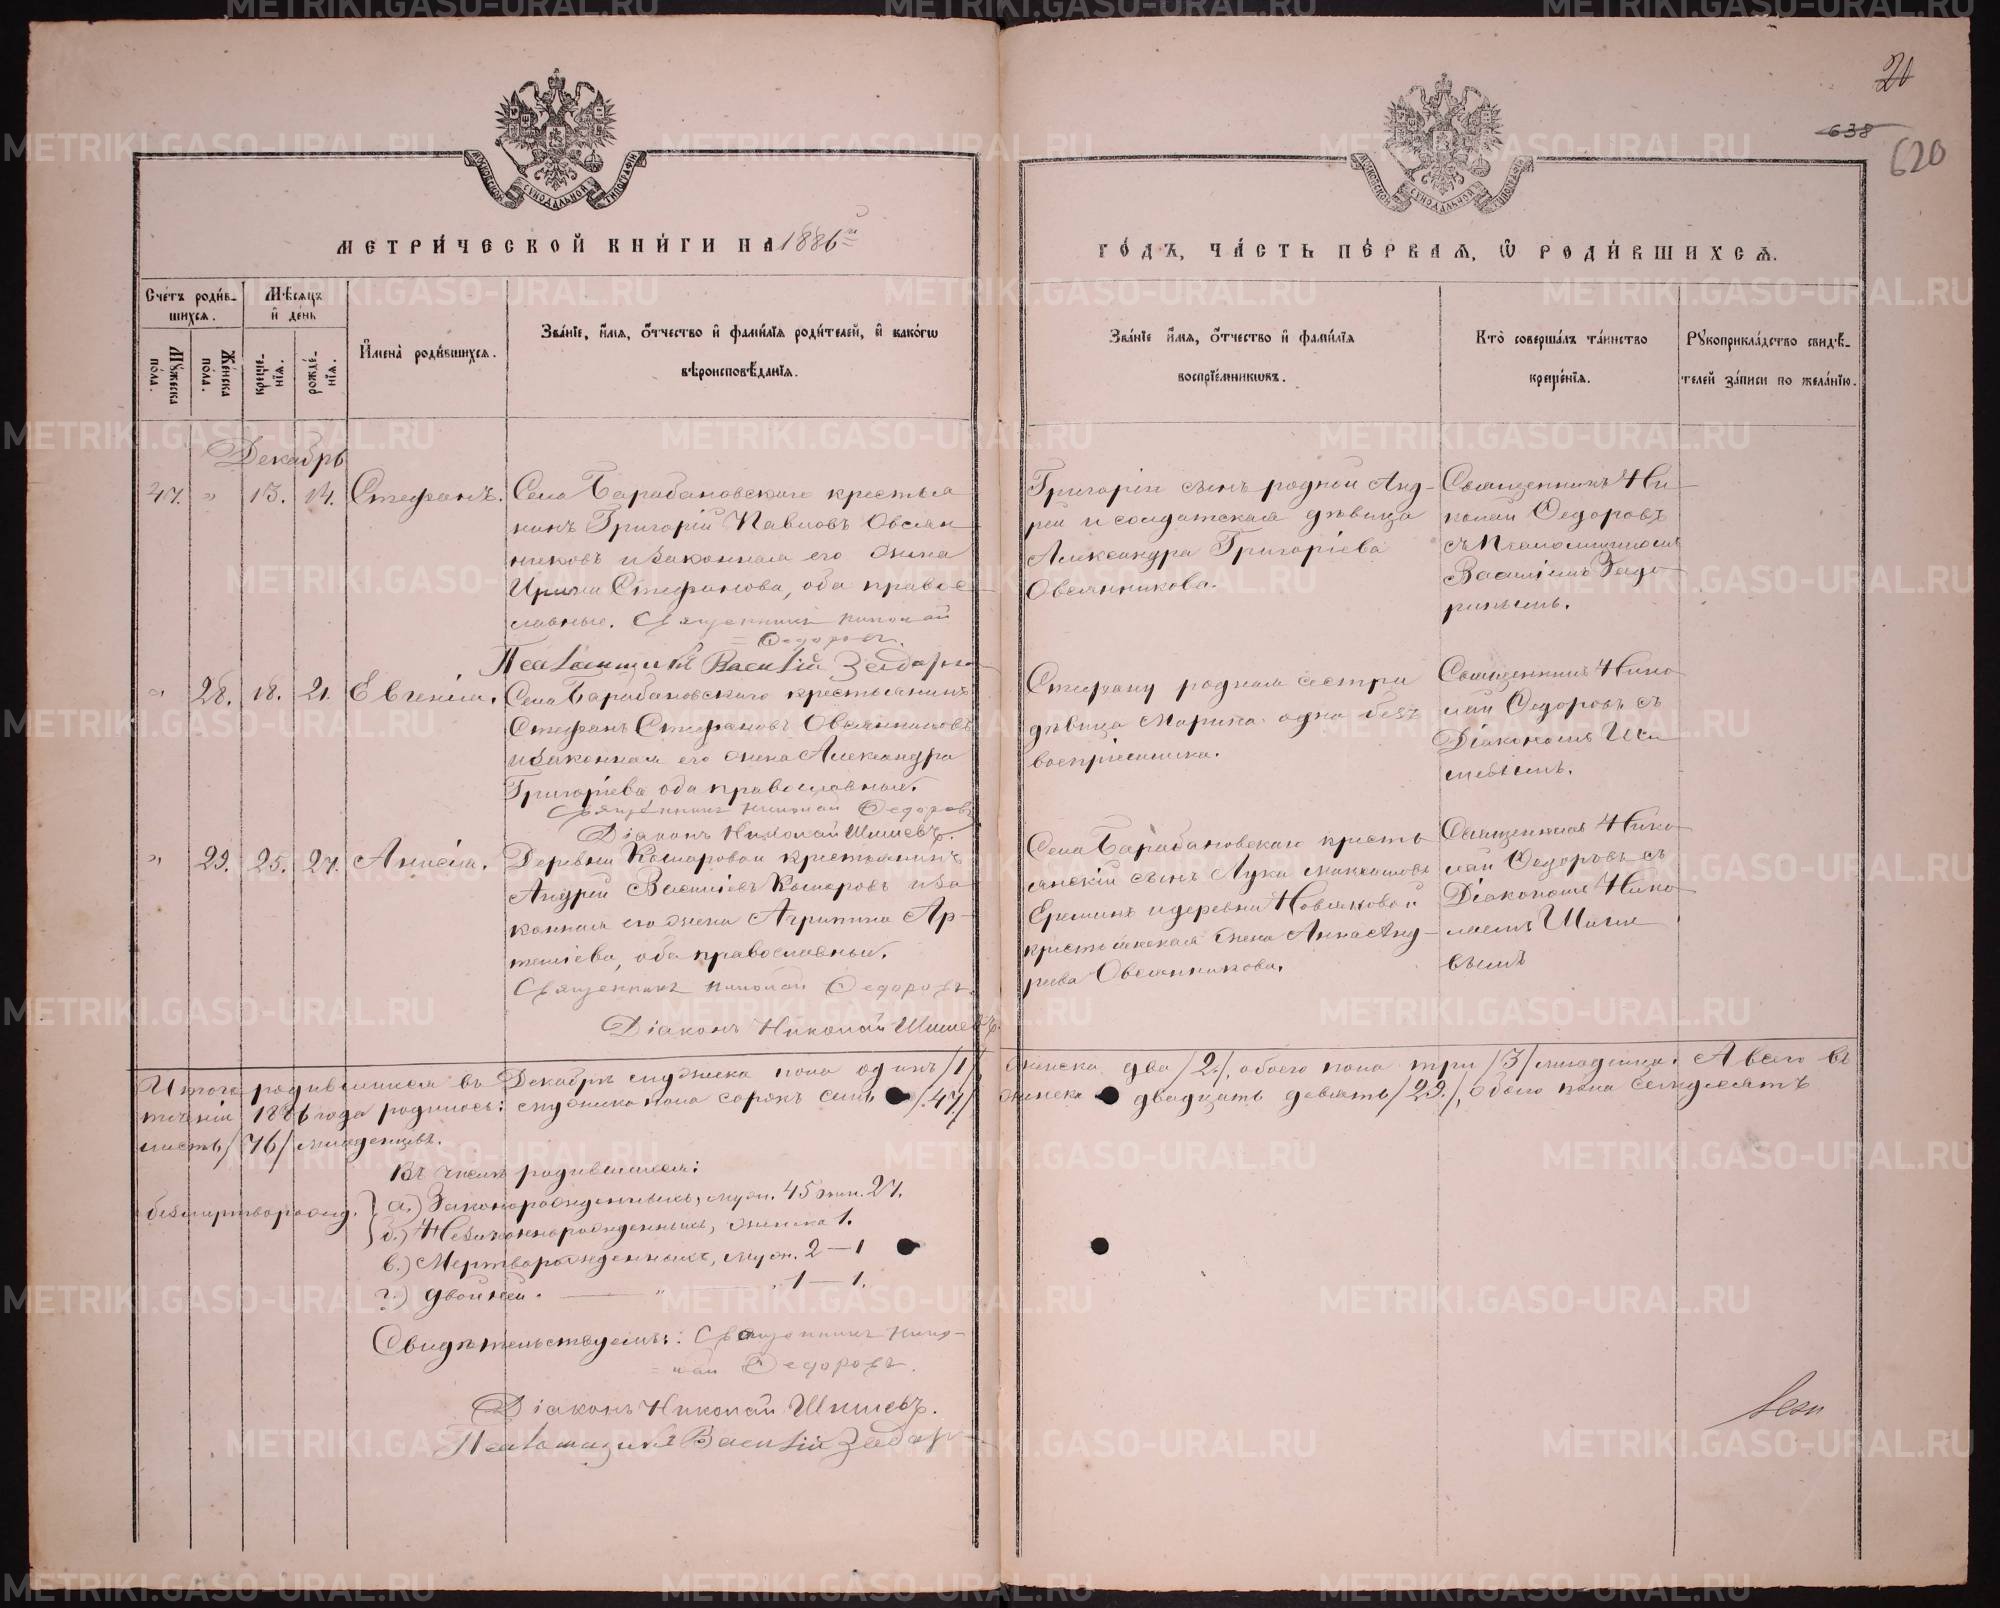 20
638
620
МОСКОВСКОЙ СѴНОДАЛЬНОЙ ТИПОГРАФІИ
МОСКОВСКОЙ СѴНОДАЛЬНОЙ ТИПОГРАФІИ
МЕТРИ́ЧЕСКОЙ КНИ́ГИ НА 1886й
ГО́ДЪ, ЧА́СТЬ ПЕ́РВАЯ, Ѡ РОДИ́ВШИХСѦ.
Сче́тъ роди́в-
шихсѧ.
Мꙋжеска
по́ла.
Же́нска
по́ла.
Мѣ́сѧцъ
и҆ день
креще́-
нїѧ.
рожде́-
нїѧ.
И҆мена̀ роди́вшихсѧ.
Зва́нїе, и҆́мѧ, ѻ҆́тчество и҆ фами́лїѧ роди́телей, и҆ како́гѡ
вѣроисповѣ́данїѧ.
Зва́нїе и҆́мѧ, ѻ҆́тчество и҆ фами́лїѧ
воспрїе́мникѡвъ.
Кто̀ соверша́лъ та́инство
креще́нїѧ.
Рꙋкоприкла́дство свидѣ́-
телей за́писи по жела́нїю.
Декабрь
47. " 13. 14. Стефанъ.
Села Барабановскаго крестья
нинъ Григорій Павловъ Овсян
никовъ и законная его жена
Ирина Стефанова, оба правос-
лавные. Священникъ Николай
= Ѳедоровъ.
Псаломщикъ Василій
Григорія сынъ родной Анд-
рей и солдатская дѣвица
Александра Григоріева
Овсянникова.
Священникъ Ни-
колай Ѳедоровъ
съ Псаломщикомъ
Василіемъ Задо-
ринымъ.
" 28. 18. 21. Евгенія.
Села Барабановскаго крестьянинъ
Стефанъ Стефановъ Овсянниковъ
и законная его жена Александра
Григоріева оба православные.
Священникъ Николай Ѳедоровъ
Діаконъ Николай Шишевъ.
Стефану родная сестра
дѣвица Марина одна безъ
воспріемника.
Священникъ Нико-
лай Ѳедоровъ съ
Діакономъ Ши
шевымъ.
" 29. 25. 27. Анисія.
Деревни Комаровой крестьянинъ
Андрей Василіевъ Комаровъ и за
конная его жена Агрипина Ар-
темиева, оба православные.
Священникъ Николай Ѳедоровъ.
Діаконъ Николай Шишевъ.
Села Барабановскаго кресть
янскій сынъ Лука Максимовъ
Ереминъ и деревни Новиковой
крестьянская жена Анна Анд-
реева Овсянникова.
Священникъ Нико-
лай Ѳедоровъ съ
Діакономъ Нико-
лаемъ Шише
вымъ
Итого родившихся въ Декабрѣ мужеска пола одинъ /1/ женска два /2/, обоего пола три /3/ младенца. А всего въ
теченіи 1886 года родилось: мужеска пола сорокъ семь /47/ женска двадцать девять /29/, обоего пола семьдесятъ
шесть /76/ младенцевъ.
Въ числѣ родившихся:
а.) Законорожденныхъ, муж. 45 жен. 27.
б.) Незаконнорожденныхъ, женска 1.
в.) Мертворожденныхъ, муж. 2 — 1
г.) двойней. — " — 1 — 1.
Свидѣтельствуемъ: Священникъ Нико-
= лай Ѳедоровъ.
Діаконъ Николай Шишевъ.
Псаломщикъ Василій
METRIKI.GASO-URAL.RU